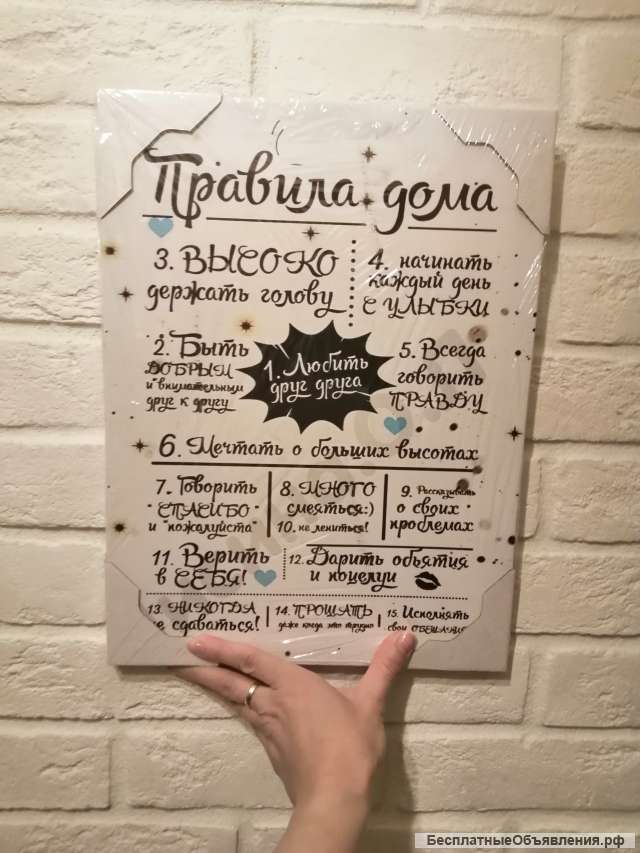 Правила дома
3. ВЫСОКО
держать голову
4. начинать
каждый день
С УЛЫБКИ
2. Быть
ДОБРЫМ
и внимательным
друг к другу
1. Любить
друг друга
5. Всегда
говорить
ПРАВДУ
6. Мечтать о больших высотах
7. Говорить
"СПАСИБО"
и "пожалуйста"
8. МНОГО
смеяться:)
10. не лениться!
9. Рассказывать
о своих
проблемах
11. Верить
в СЕБЯ!
12. Дарить объятия
и поцелуи
13. НИКОГДА
не сдаваться!
14. ПРОЩАТЬ
даже когда это трудно
15. Исполнять
свои ОБЕЩАНИЯ
БесплатныеОбъявления.рф